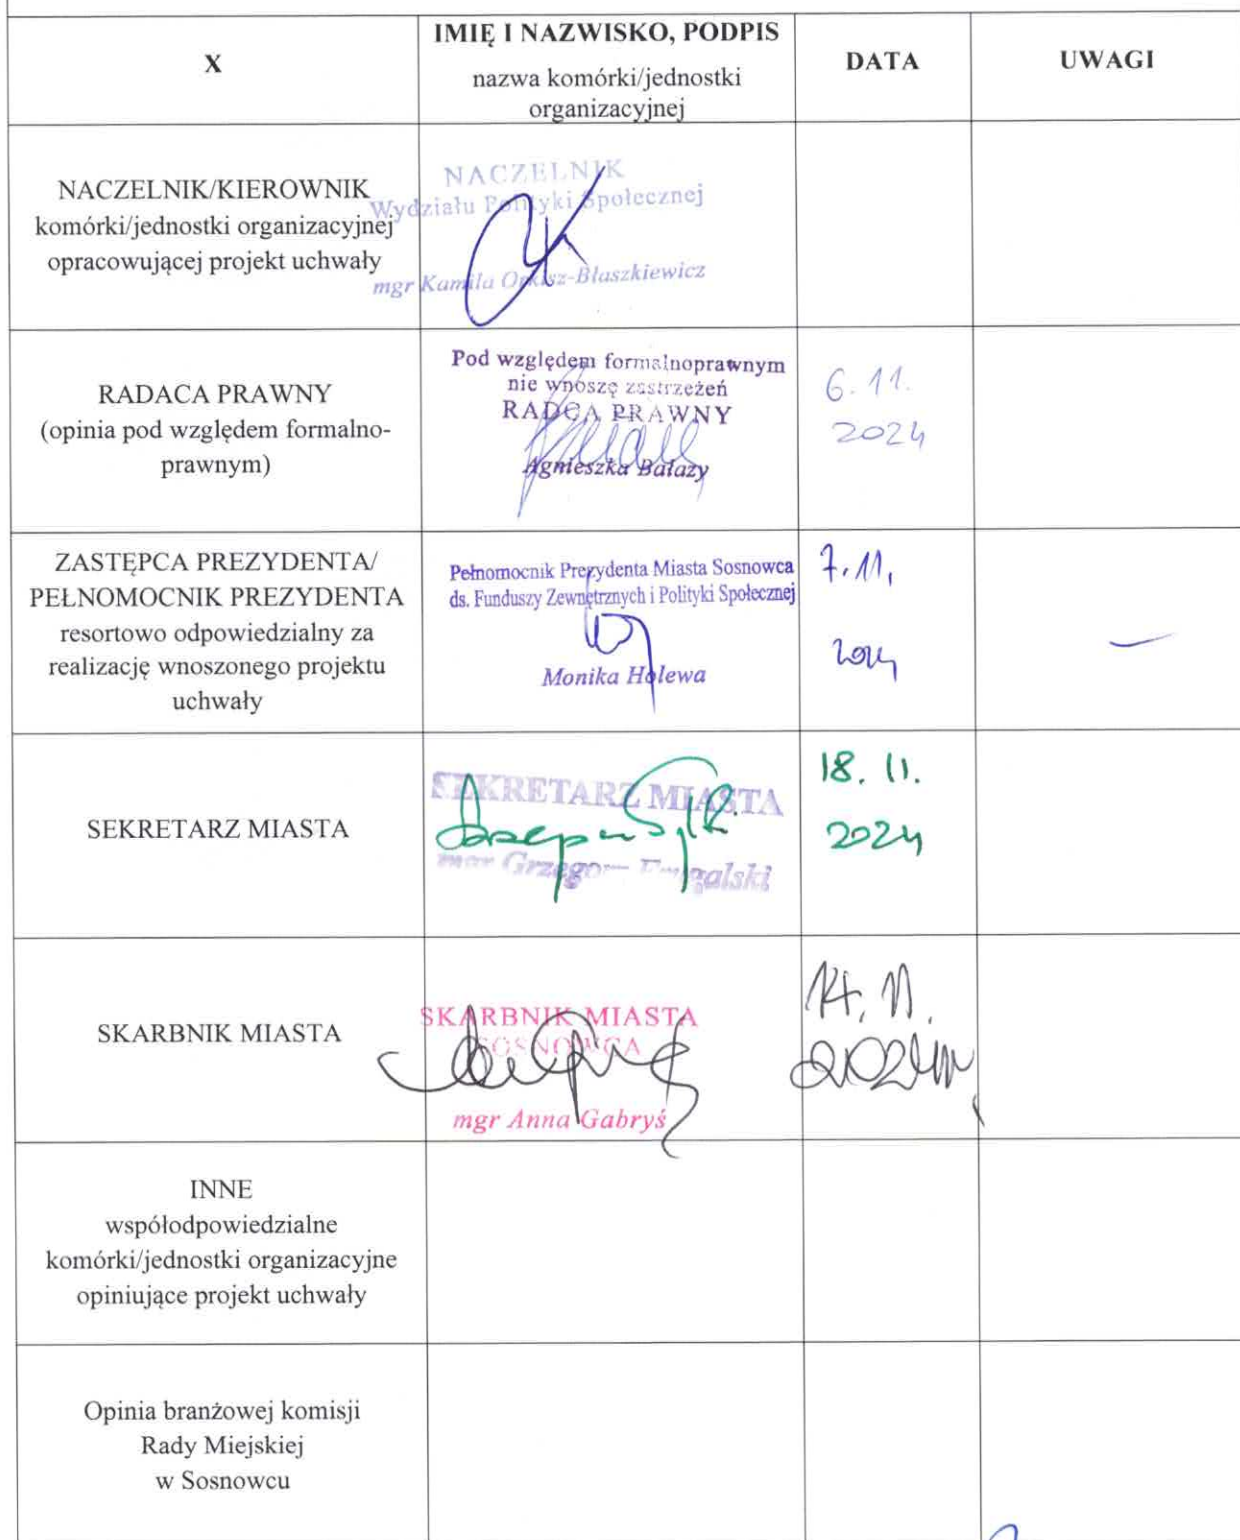 X
IMIĘ I NAZWISKO, PODPIS
nazwa komórki/jednostki
organizacyjnej
DATA
UWAGI
NACZELNIK/KIEROWNIK
komórki/jednostki organizacyjnej
opracowującej projekt uchwały
NACZELNIK
Wydziału Polityki Społecznej
mgr Kamila Opkisz-Błaszkiewicz
RADACA PRAWNY
(opinia pod względem formalno-
prawnym)
Pod względem formalnoprawnym
nie wnoszę zastrzeżeń
RADCA PRAWNY
Agnieszka Bałazy
6.11.
2024
ZASTĘPCA PREZYDENTA/
PEŁNOMOCNIK PREZYDENTA
resortowo odpowiedzialny za
realizację wnoszonego projektu
uchwały
Pełnomocnik Prezydenta Miasta Sosnowca
ds. Funduszy Zewnętrznych i Polityki Społecznej
Monika Holewa
7.11.
2024
SEKRETARZ MIASTA
SEKRETARZ MIASTA
mgr Grzegorz
18.11.
2024
SKARBNIK MIASTA
SKARBNIK MIASTA
SOSNOWCA
mgr Anna Gabryś
14.11.
INNE
współodpowiedzialne
komórki/jednostki organizacyjne
opiniujące projekt uchwały
Opinia branżowej komisji
Rady Miejskiej
w Sosnowcu